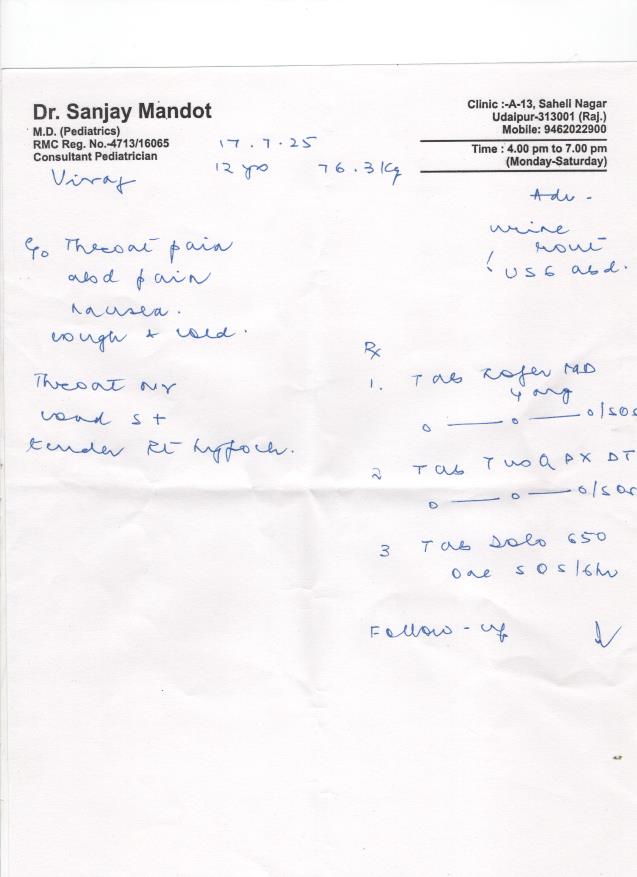 Dr. Sanjay Mandot
M.D. (Pediatrics)
RMC Reg. No.-4713/16065
Consultant Pediatrician
Clinic :-A-13, Saheli Nagar
Udaipur-313001 (Raj.)
Mobile: 9462022900
Time : 4.00 pm to 7.00 pm
(Monday-Saturday)
17.7.25
Viraj
12 yrs 76.3 Kg
C/o Throat pain
abd pain
nausea.
cough + cold.
Throat
S+
tender Rt hypoch.
Adv -
urine
rout
USG abd.
Rx
1. Tab Zofer MD
4 mg
0 — 0 — 0/SOS
2 Tab DT
0 — 0 — 0/SOS
3 Tab Dolo 650
One SOS/6hr
Follow-up